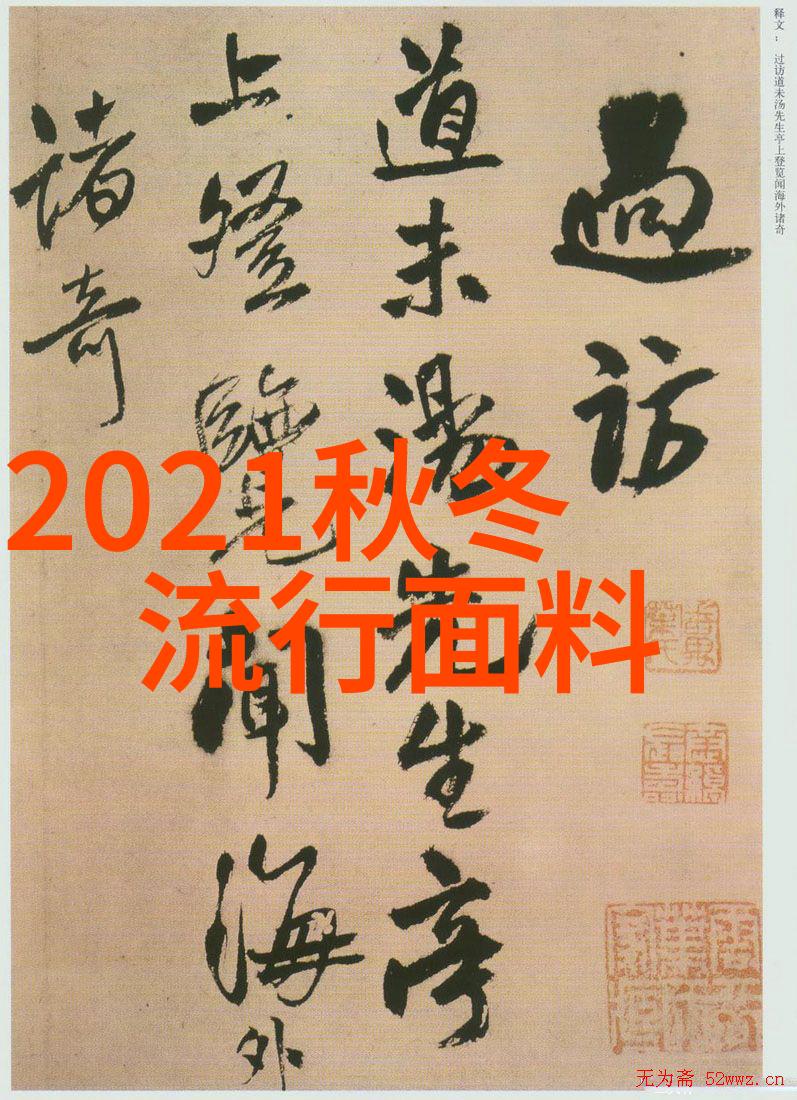 释文： 过访道未汤先生亭上登览闻海外诸奇
過訪
道未湯先生亭
上登覽聞海外
諸奇
2021秋冬
流行面料
无为斋 52wwz.cn